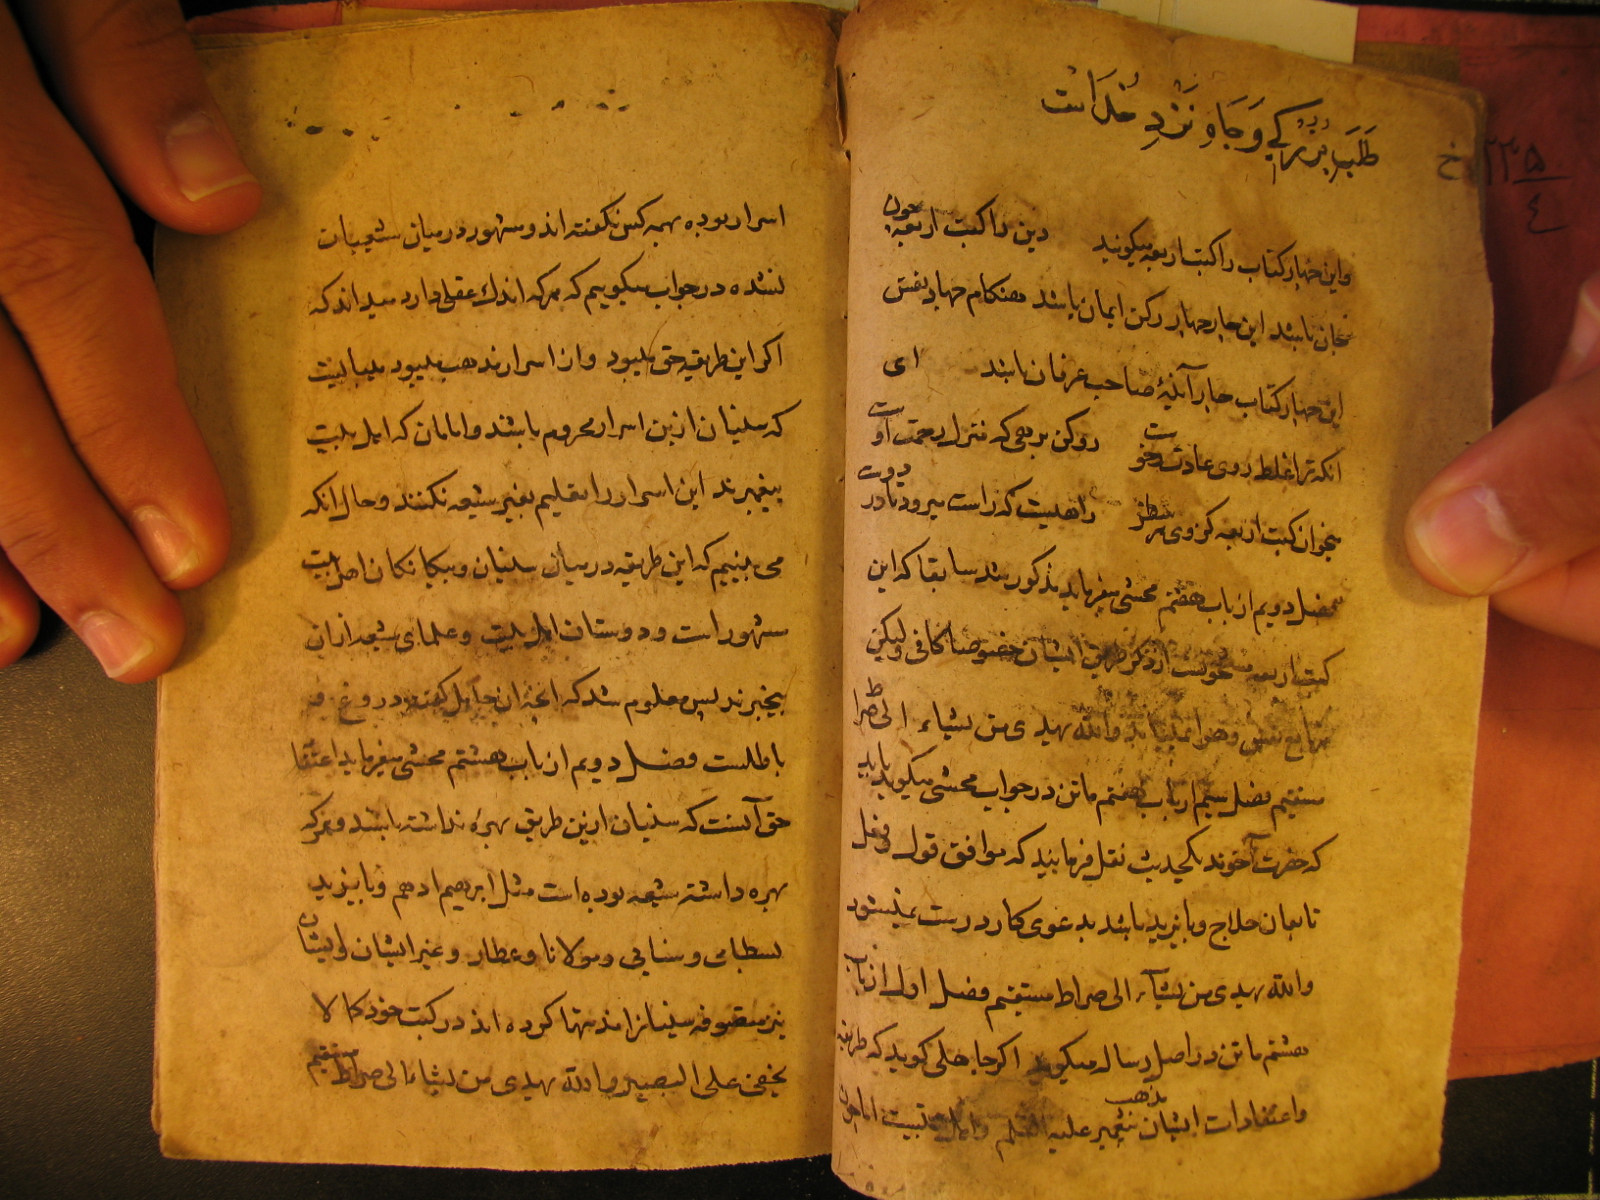 طَلَبِ بُزُرْكِي وَجَاه نَزْدِ خُدَا اَست
۲۳۵ خ
۴
واین چهار کتاب را کتب اربعه میکویند دین را کتب اربعه چون
جان باشد این چار چهار رکن ایمان باشد هنکام جهاد نفس
این چهار کتاب چار آئینهٔ صاحب عرفان باشد ای
انکه ترا غلط روی عادت وخوست رو کن برهی که منزل رحمت اوست
میخوان کتب اربعه کز وی راهیست که راست میرود تا در دوست
فصل دویم از باب هفتم محشی میفرماید مذکور شد سابقا که این
کتب اربعه از ذکر طریق ایشان خصوصا کافی ولیکن
والله یهدی من یشاء الی صراط
مستقیم فصل سیم از باب هفتم ماتن در جواب محشی میکوید باید
که حضرت آخوند یکحدیث نقل فرمایند که موافق قول وفعل
تابعان حلاج وبایزید باشد بدعوی کار درست نمیشود
والله یهدی من یشآء الی صراط مستقیم فصل اول از باب
هشتم ماتن در اصل رساله میکوید اکر جاهلی کوید که طریقه
واعتقادات ایشان مذهب پیغمبر علیه السلم واهل بیتست اما چون
اسرار بوده بهمه کس نکفته اند ومشهور در میان شیعیان
نشده در جواب میکوییم که هرکه اندك عقلی دارد میداند که
اکر این طریقه حق میبود واز اسرار مذهب میبود میبایست
که سنیان ازین اسرار محروم باشند وامامان که اهل بیت
پیغمبرند این اسرار را تعلیم بغیر شیعه نکنند وحال انکه
می بینیم که این طریقه در میان سنیان وبیکانکان اهل بیت
مشهور است ودوستان اهل بیت وعلمای شیعه ازان
بیخبرند پس معلوم شد که انچه ان جاهل کفته دروغ و
باطلست فصل دویم از باب هشتم محشی میفرماید اعتقاد
حق آنست که سنیان ازین طریق بهره نداشته باشند وهرکه
بهره داشته شیعه بوده است مثل ابرهیم ادهم وبایزید
بسطامی وسنایی ومولانا وعطار وغیر ایشان وایشان
نیز متصوفه سنیانرا مذمتها کرده اند در کتب خود کما لا
یخفی علی البصیر والله یهدی من یشاء الی صراط مستقیم